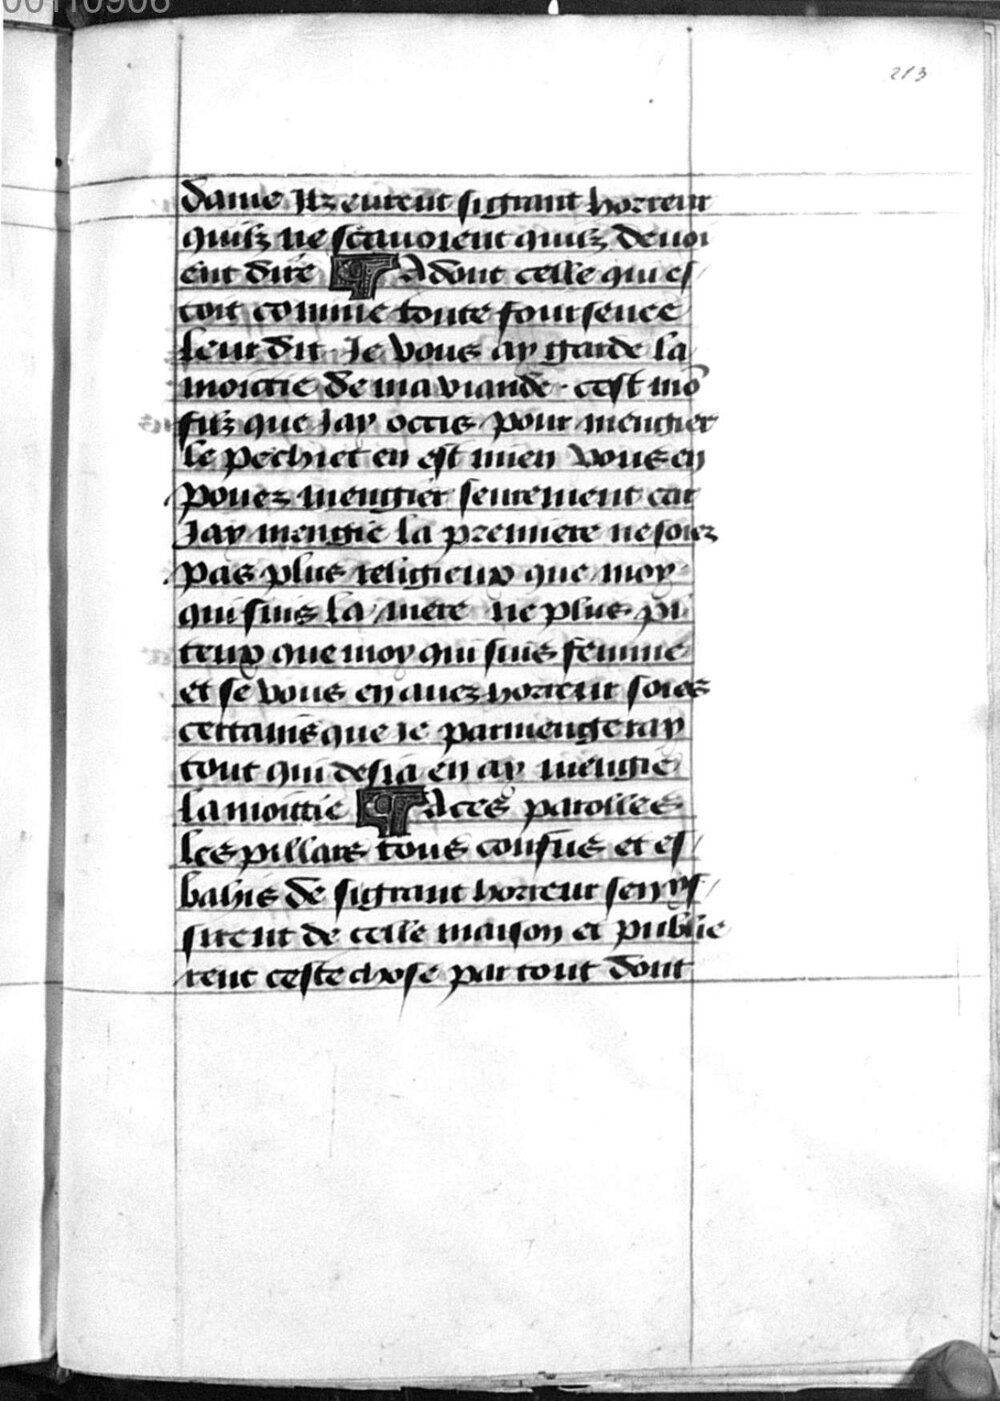 00110906
213
dame Ilz eurent sigrant horreur
quilz ne scauoient quilz deuoi
ent dire ¶ Adont celle qui es/
toit comme toute foursenee
leur dit Je vous ay garde la
moictie de ma viande · cest mō
filz que Jay occis pour mengier
le pechiet en est mien vous en
pouez mengier seurement car
Jay mengie la premiere ne soiez
pas plus religieux que moy
qui suis la mere ne plus pi
teux que moy qui suis femme
et se vous en auez horreur soies
certains que Je parmengeray
tout qui desia en ay mengie
la moittie ¶ A ces parolles
les pillars tous confus et es/
bahis de sigrant horreur sen ys/
sirent de celle maison et publie
rent ceste chose par tout dont